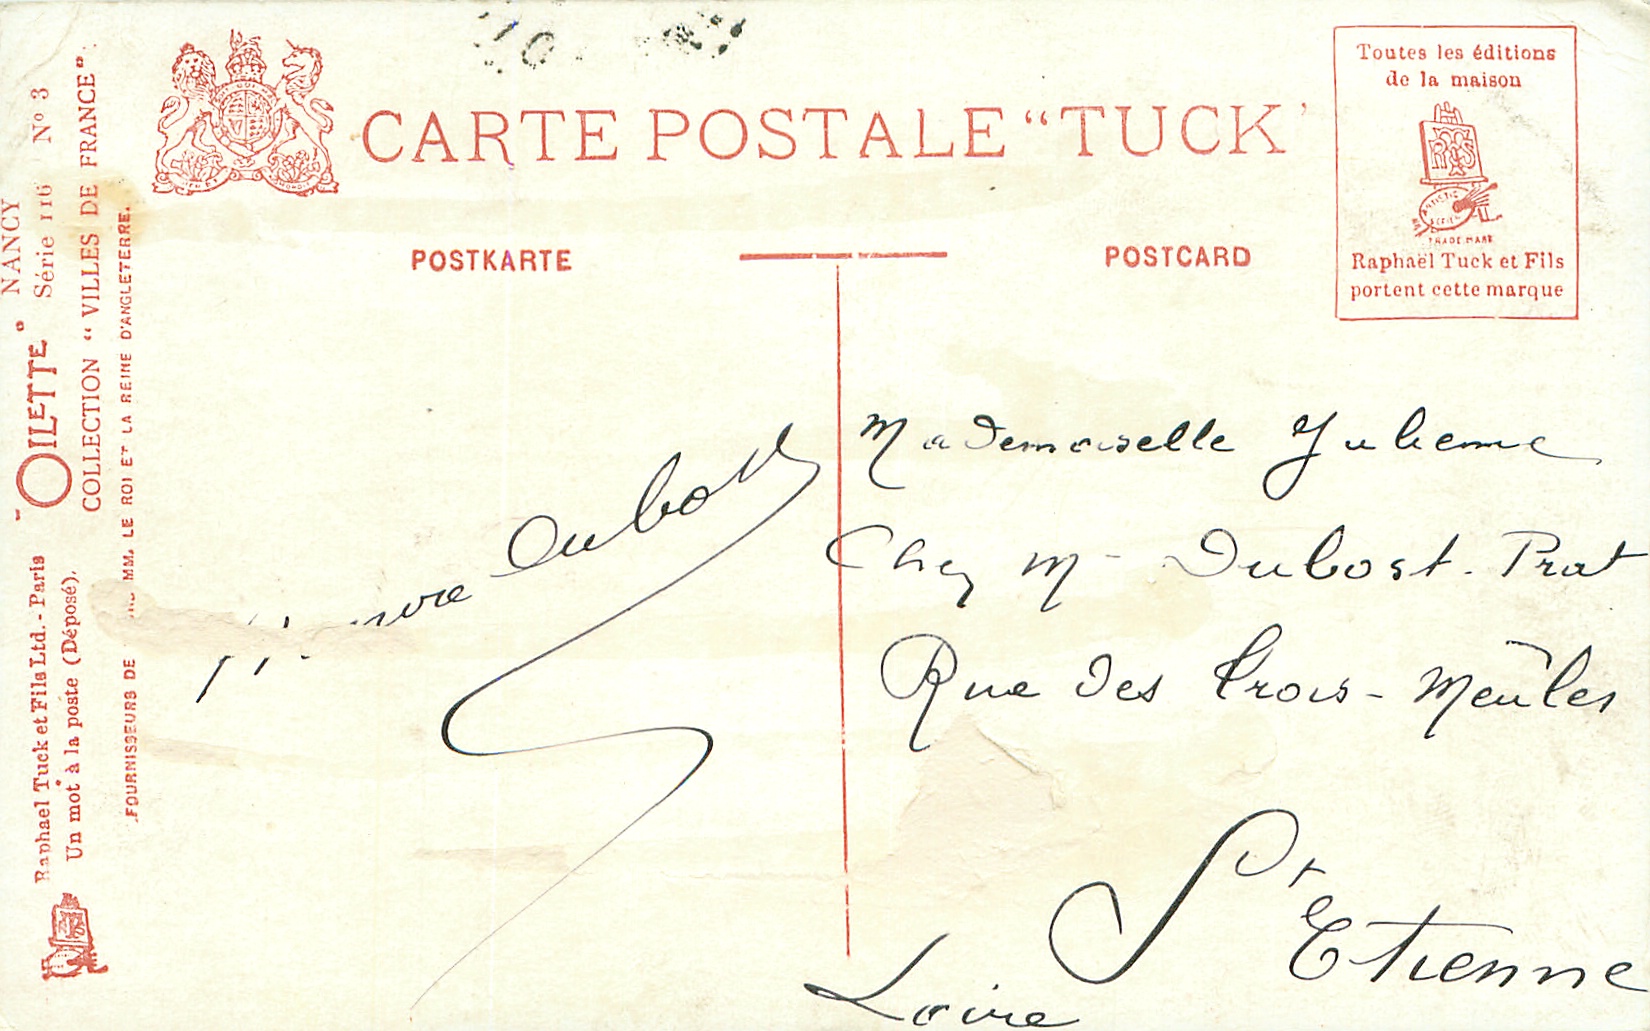 CARTE POSTALE "TUCK'
POSTKARTE
POSTCARD
Toutes les éditions
de la maison
TRADE MARK
Raphaël Tuck et Fils
portent cette marque
NANCY
"OILETTE" Série 116 Nº 3
COLLECTION "VILLES DE FRANCE".
FOURNISSEURS DE MM. LE ROI ET LA REINE D'ANGLETERRE.
Raphael Tuck et Fils Ltd. - Paris
Un mot à la poste (Déposé).
Dubost
Mademoiselle Julienne
Chez Mr Dubost-Prat
Rue des Trois-Meules
St Etienne
Loire